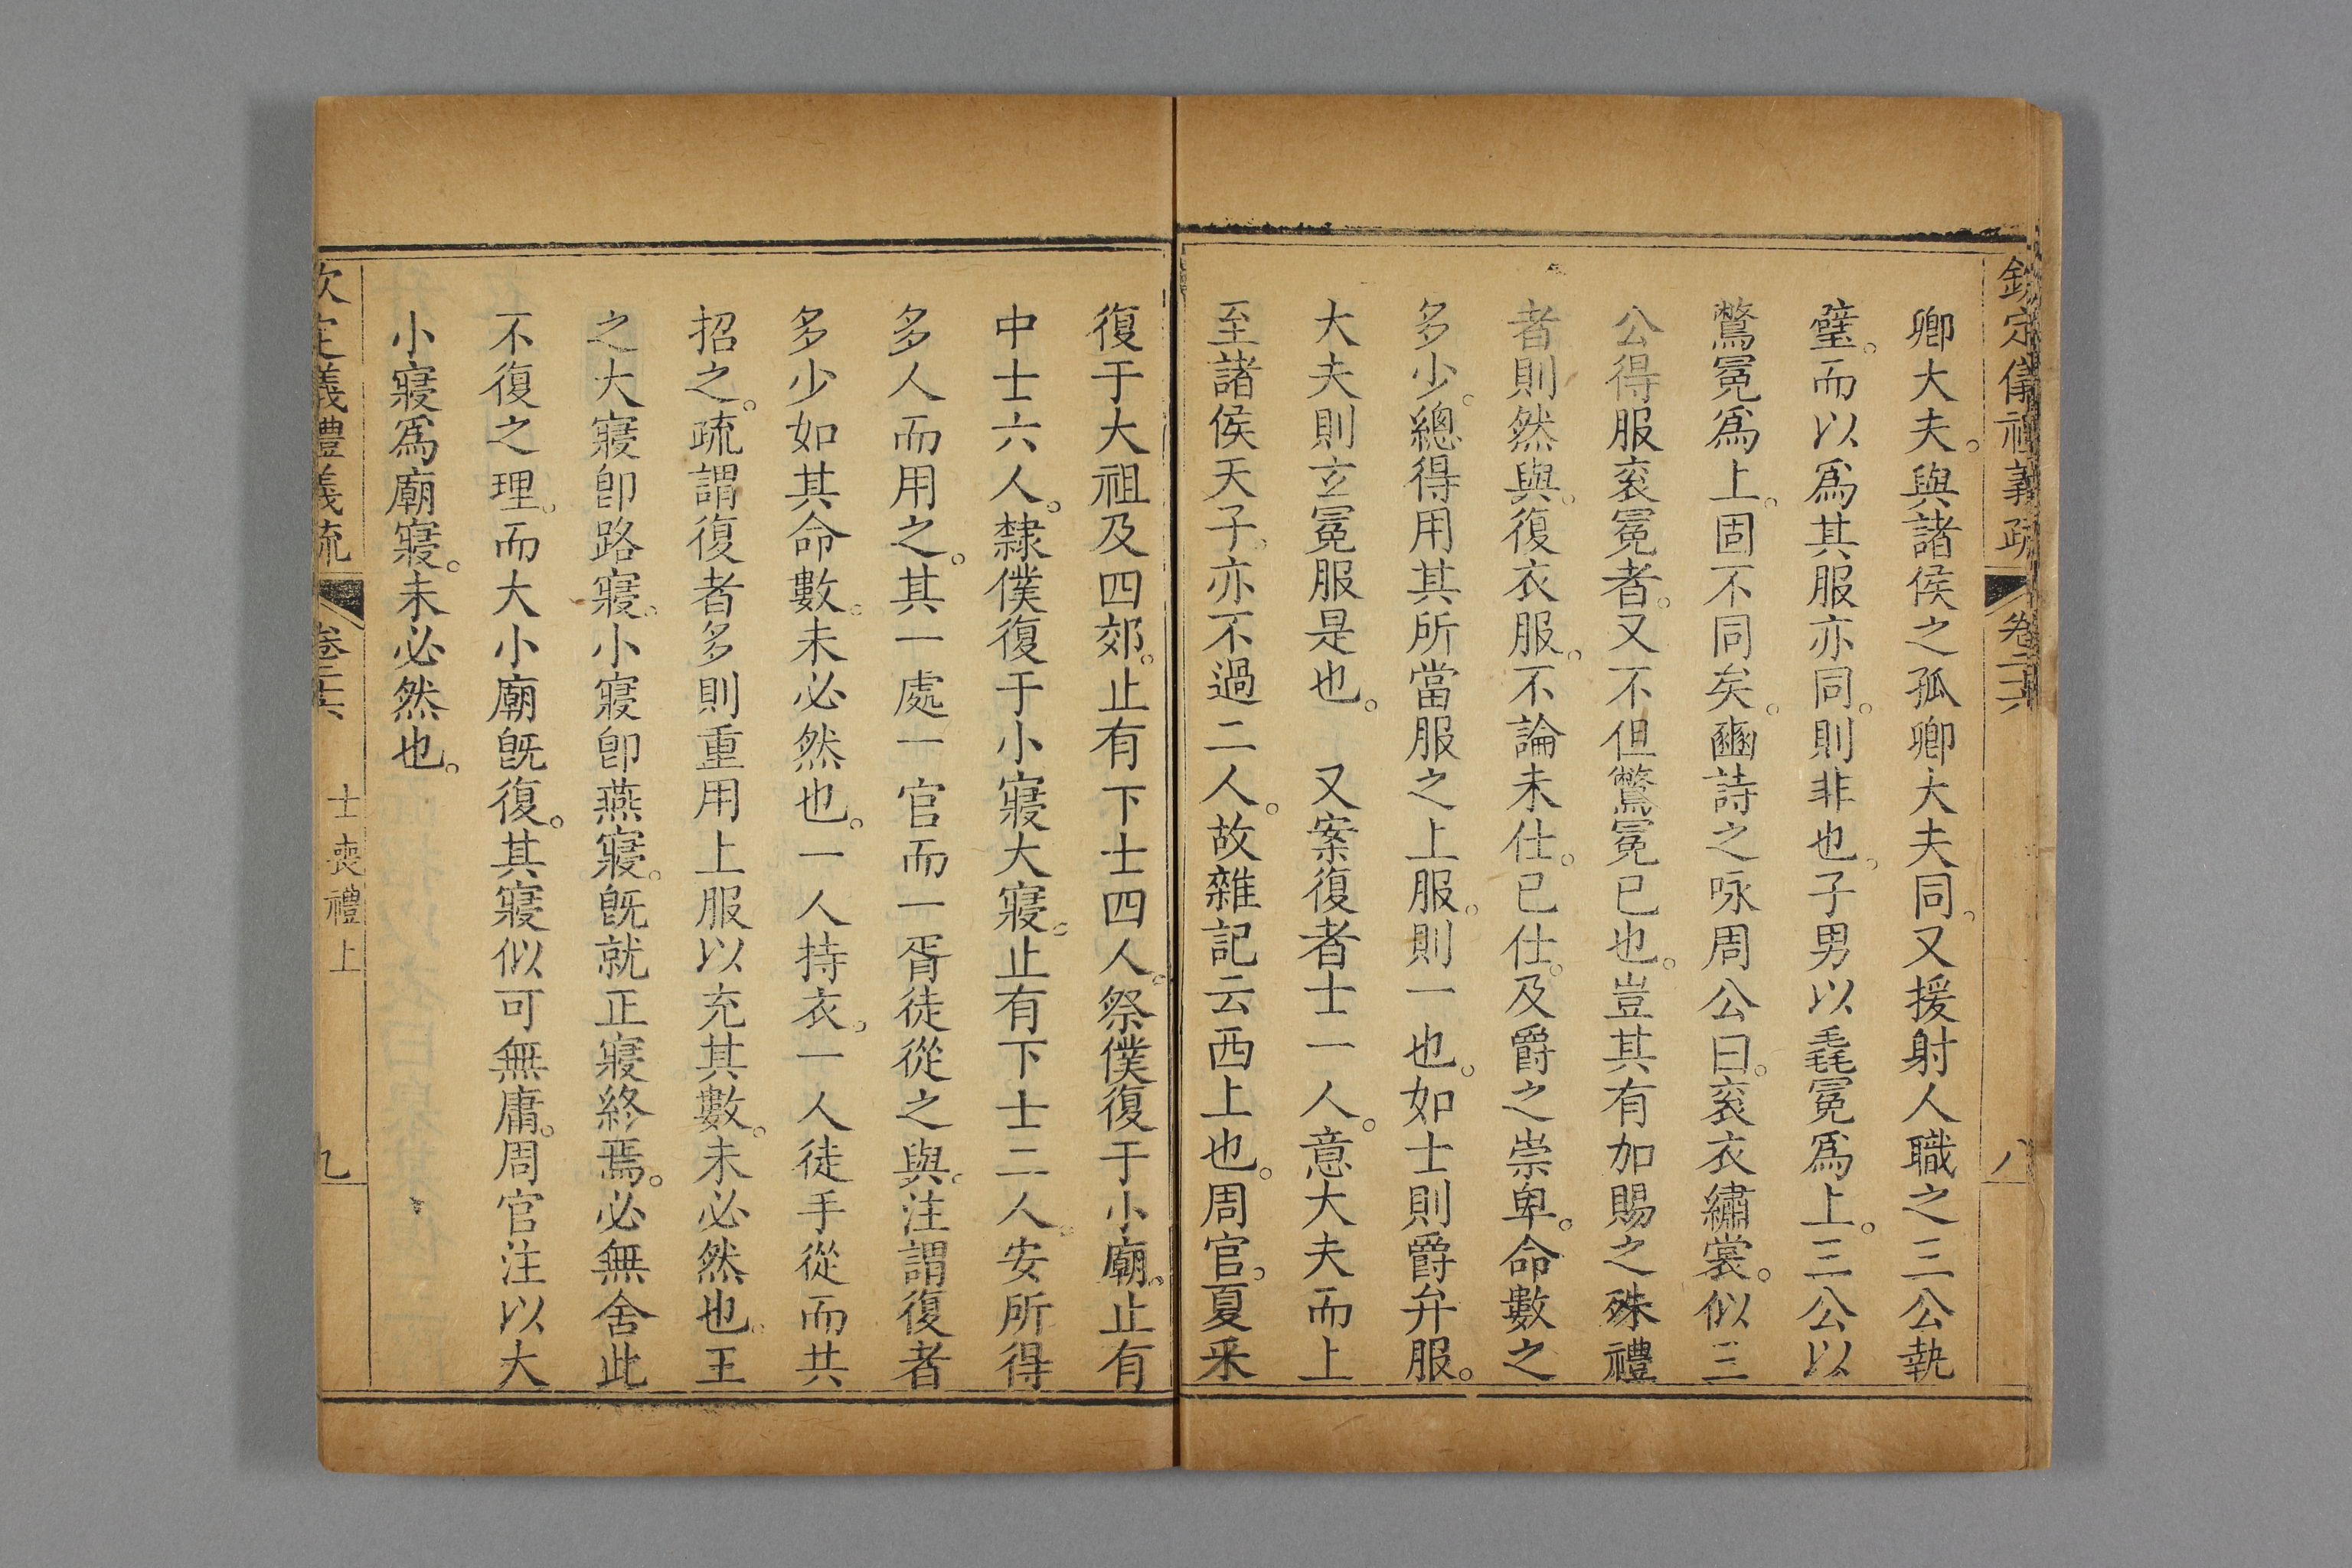 欽定儀禮義疏 卷二十六 八
卿大夫。與諸侯之孤卿大夫同。又援射人職之三公執
璧。而以爲其服亦同。則非也。子男以毳冕爲上。三公以
鷩冕爲上。固不同矣。豳詩之咏周公曰。衮衣繡裳。似三
公得服衮冕者。又不但鷩冕已也。豈其有加賜之殊禮
者則然與。復衣服。不論未仕。已仕。及爵之崇卑。命數之
多少。總得用其所當服之上服。則一也。如士則爵弁服。
大夫則玄冕服是也。　又案復者士一人。意大夫而上
至諸侯天子。亦不過二人。故雜記云西上也。周官。夏采
復于大祖及四郊。止有下士四人。祭僕復于小廟。止有
中士六人。隸僕復于小寢大寢。止有下士二人。安所得
多人而用之。其一處一官而一胥徒從之與。注謂復者
多少如其命數。未必然也。一人持衣。一人徒手從而共
招之。疏謂復者多則重用上服以充其數。未必然也。王
之大寢卽路寢。小寢卽燕寢。旣就正寢終焉。必無舍此
不復之理。而大小廟旣復。其寢似可無庸。周官注以大
小寢爲廟寢。未必然也。
欽定儀禮義疏 卷二十六 士喪禮上 九